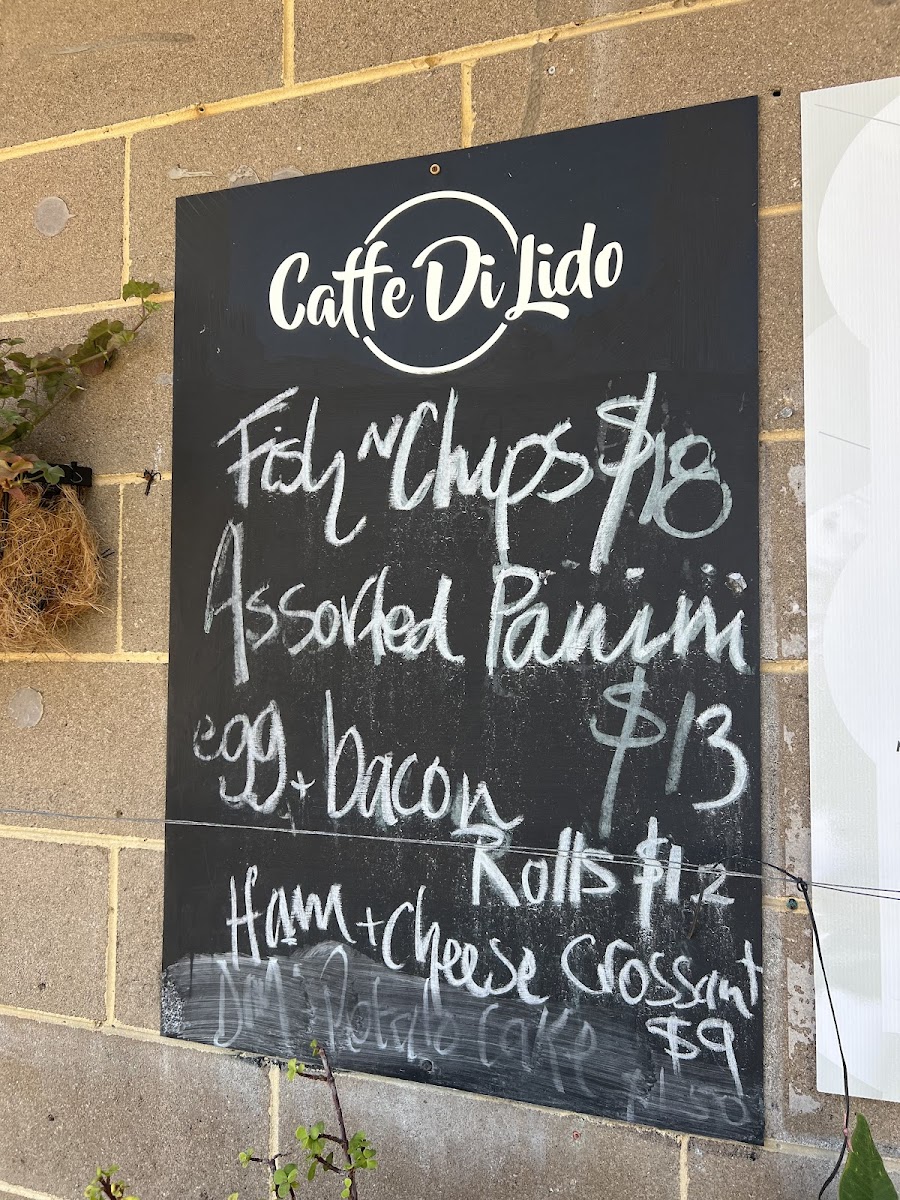 Caffe Di Lido
Fish N Chips $18
Assorted Panini
$13
egg + bacon
Rolls $12
Ham + Cheese Crossant
$9
Potato Cake